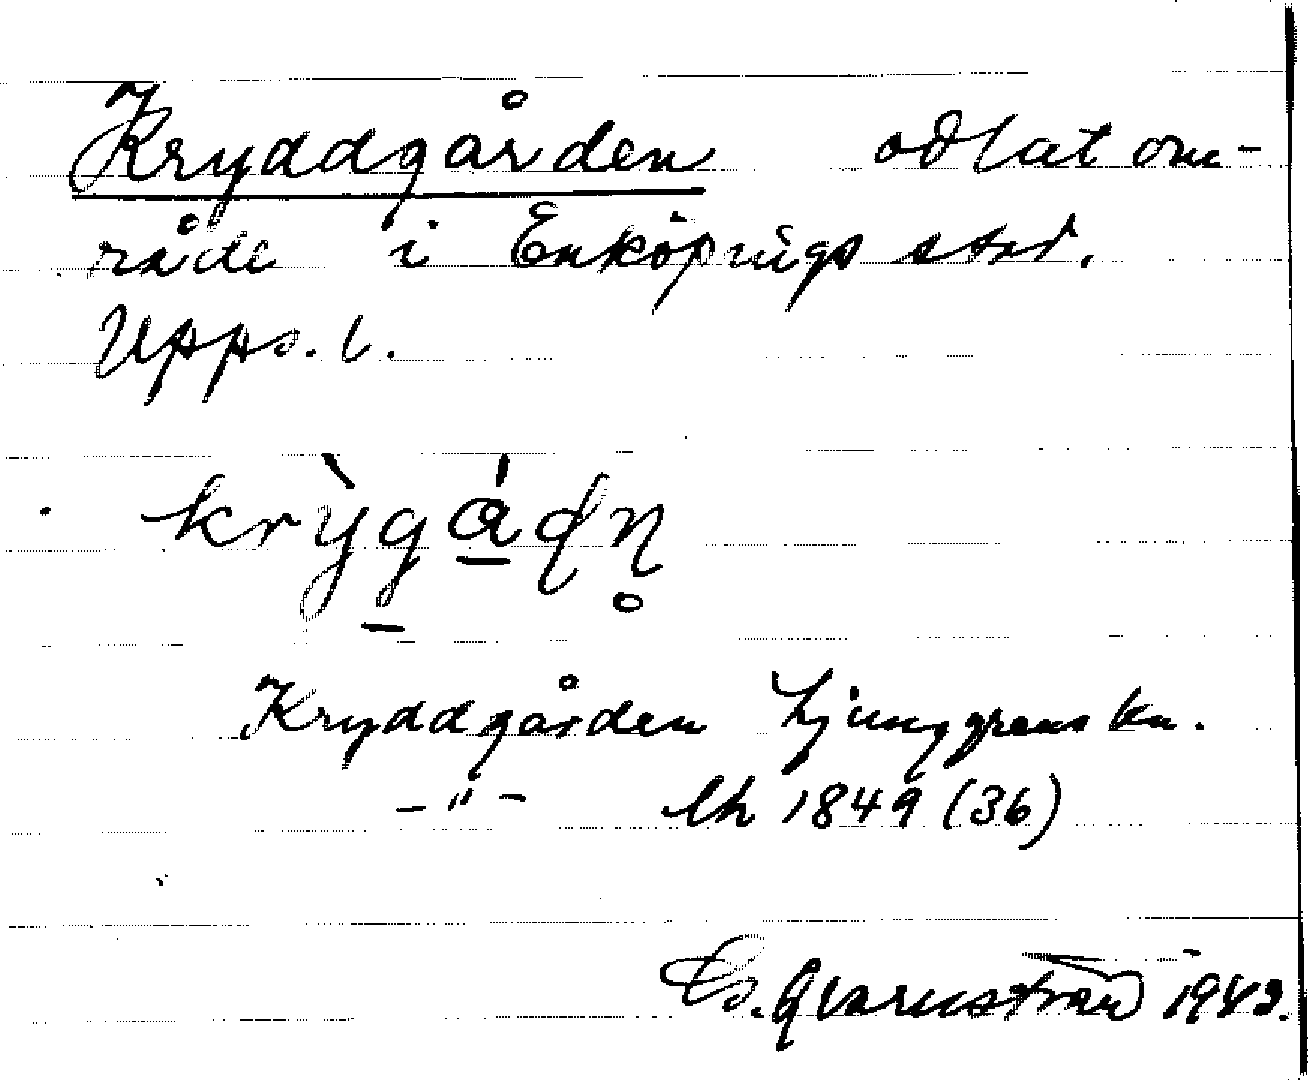 Kryddgården odlat om-
råde i Enköpings stad.
Upps. l.
krỳgá̱dn̥
Kryddgården Ljunggrens kn.
-"- lh 1849 (36)
Qvarnström